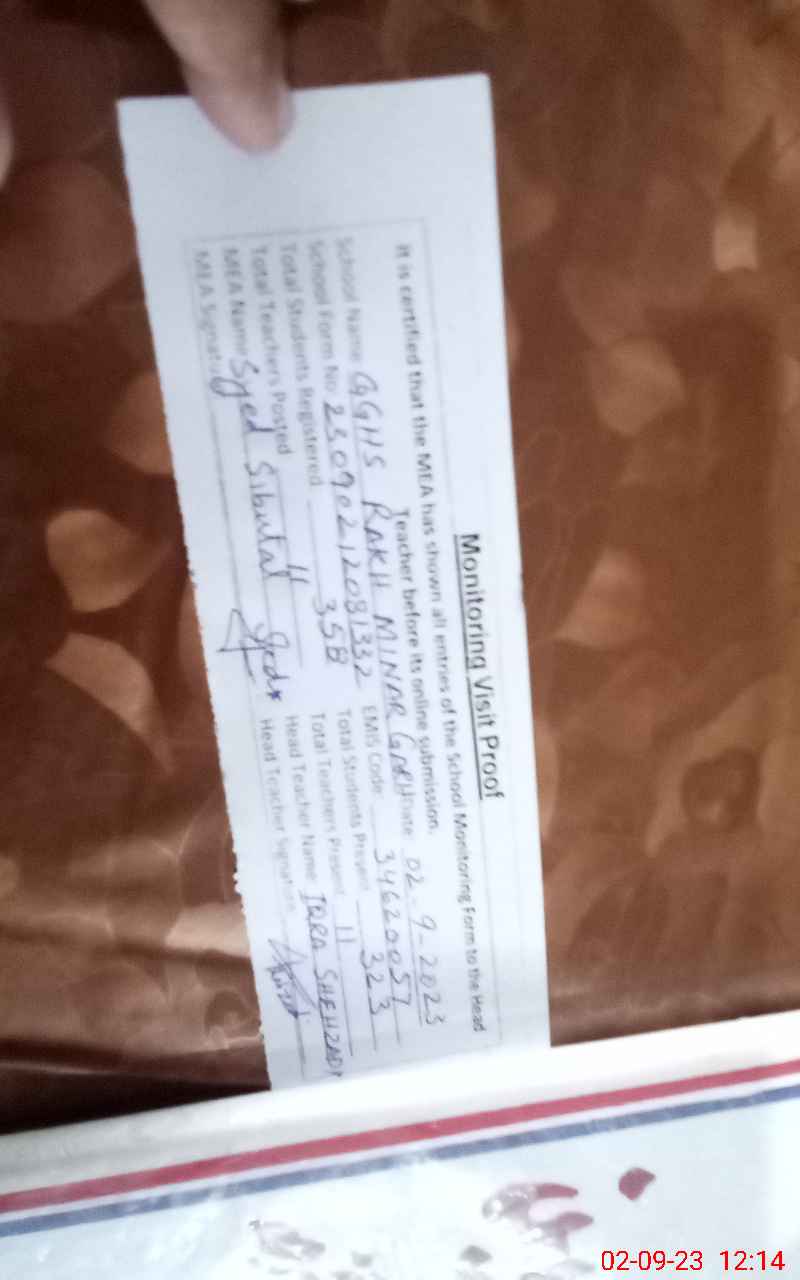 Monitoring Visit Proof
It is certified that the MEA has shown all entries of the School Monitoring Form to the Head
Teacher before its online submission.
School Name GGHS RAKH MINAR GARH Date: 02-9-2023
School Form No 23090212081332 EMIS Code: 34620057
Total Students Registered 358 Total Students Present 323
Total Teachers Posted 11 Total Teachers Present 11
MEA Name Syed Head Teacher Name IQRA SHEHZADI
MEA Signature Head Teacher Signature
02-09-23 12:14